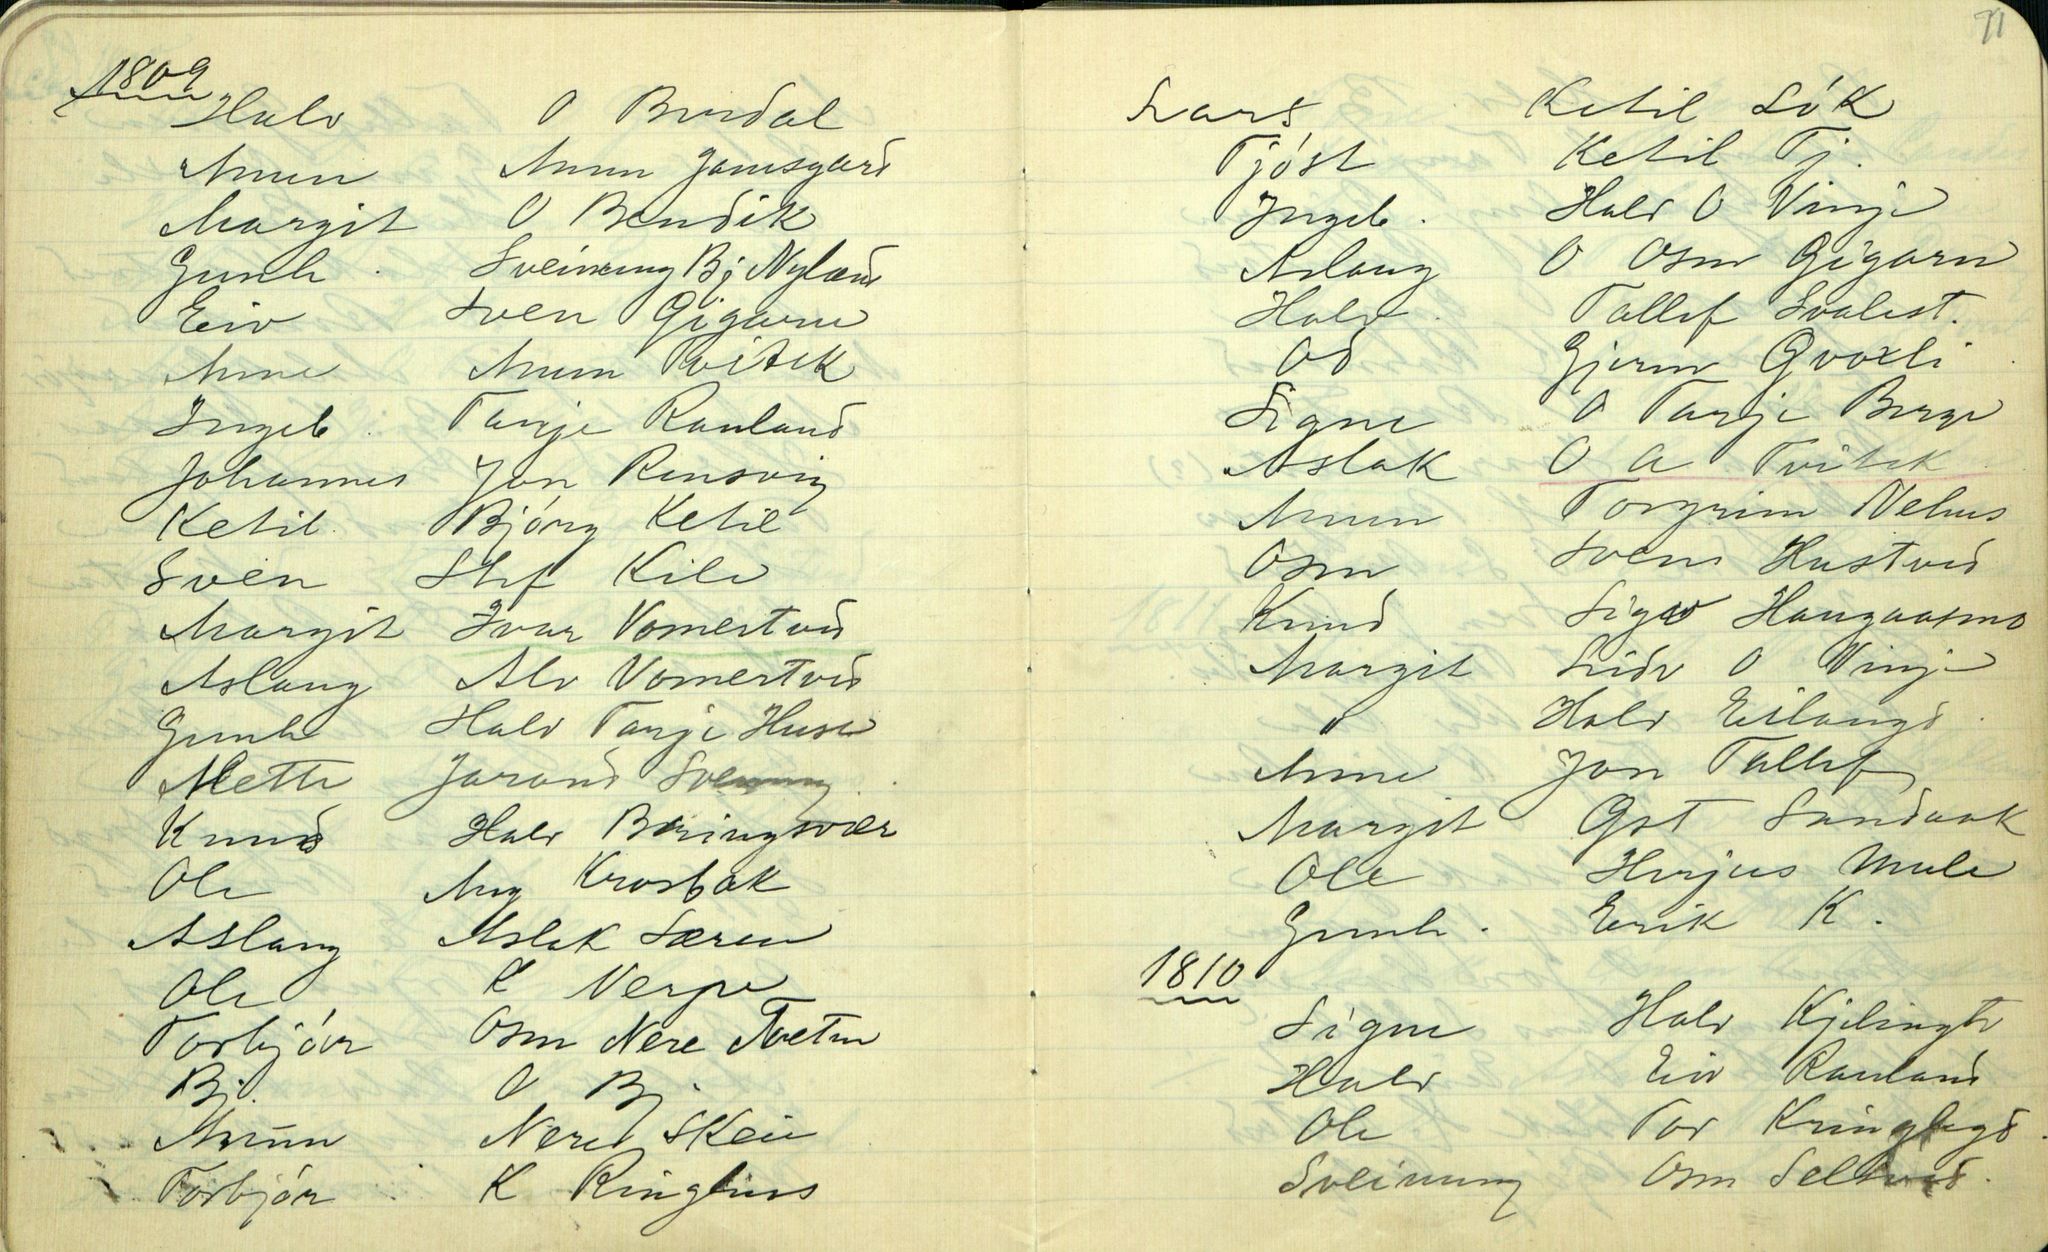 1809
Halv O Burdal
Anun Anun Jamsgard
Margit O Bendik
Gunh. Sveinung Bj Nyland
Eiv Sven Gigarn
Anne Anun Tvitek
Ingeb. Tarje Rauland
Johannes Jon Rensvig
Ketil. Bjørg Ketil
Sven Stef Kile
Margit Ivar Vomertvid
Aslaug Alv Vomertvid
Gunh Halv Tarje Huse
Mette Jarand
Knud Halv Bringsvær
Ole Aug Krosbøk
Aslaug Aslak Særen
Ole K Nerpe
Torbjör Osm Nere Tveten
Bj. O Bj.
Anun Nered Skeie
Torbjör K Ringhus
71
Lars Ketil Lók
Tjóst Ketil Tj.
Ingeb. Halv O Vinje
Aslaug O Osm Gigarn
Halv. Tallef Svalest.
Od Gjerm Qvoxli
Signe O Tarje Berge
Aslak O A Tvitek
Anun Torgrim Nehus
Osm Sven Hustvid
Knud Sigv Haugaasmo
Margit Lidv O Vinje
" Halv Eilangs.
Anne Jon Tallef
Margit Gst Sandook
Ole Herjus Mule
Gunh. Erik K.
1810
Signe Halv
Halv Eiv Rauland
Ole Tor Kringlegd.
Sveinung Osm Seltveit.